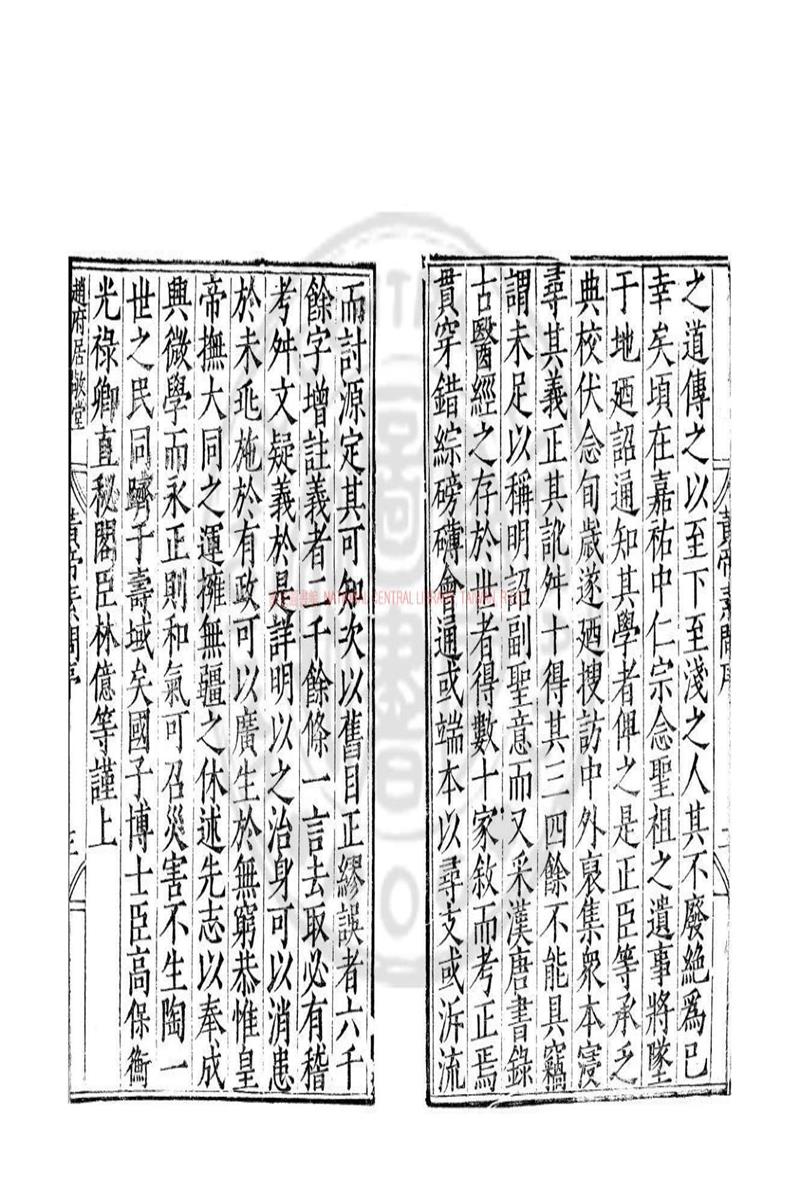 之道傳之以至下至淺之人其不廢絕爲已
幸矣頃在嘉祐中仁宗念聖祖之遺事將墜
于地廼詔通知其學者俾之是正臣等承乏
典校伏念旬歲遂廼搜訪中外裒集衆本寖
尋其義正其訛舛十得其三四餘不能具竊
謂未足以稱明詔副聖意而又采漢唐書錄
古醫經之存於世者得數十家敘而考正焉
貫穿錯綜磅礴會通或端本以尋支或泝流
黃帝素問序
而討源定其可知次以舊目正繆誤者六千
餘字增註義者二千餘條一言去取必有稽
考舛文疑義於是詳明以之治身可以消患
於未兆施於有政可以廣生於無窮恭惟皇
帝撫大同之運擁無疆之休述先志以奉成
興微學而永正則和氣可召災害不生陶一
世之民同躋于壽域矣國子博士臣高保衡
光祿卿直秘閣臣林億等謹上
趙府居敬堂
黃帝素問序
三
NATIONAL CENTRAL LIBRARY, TAIWAN, R.O.C